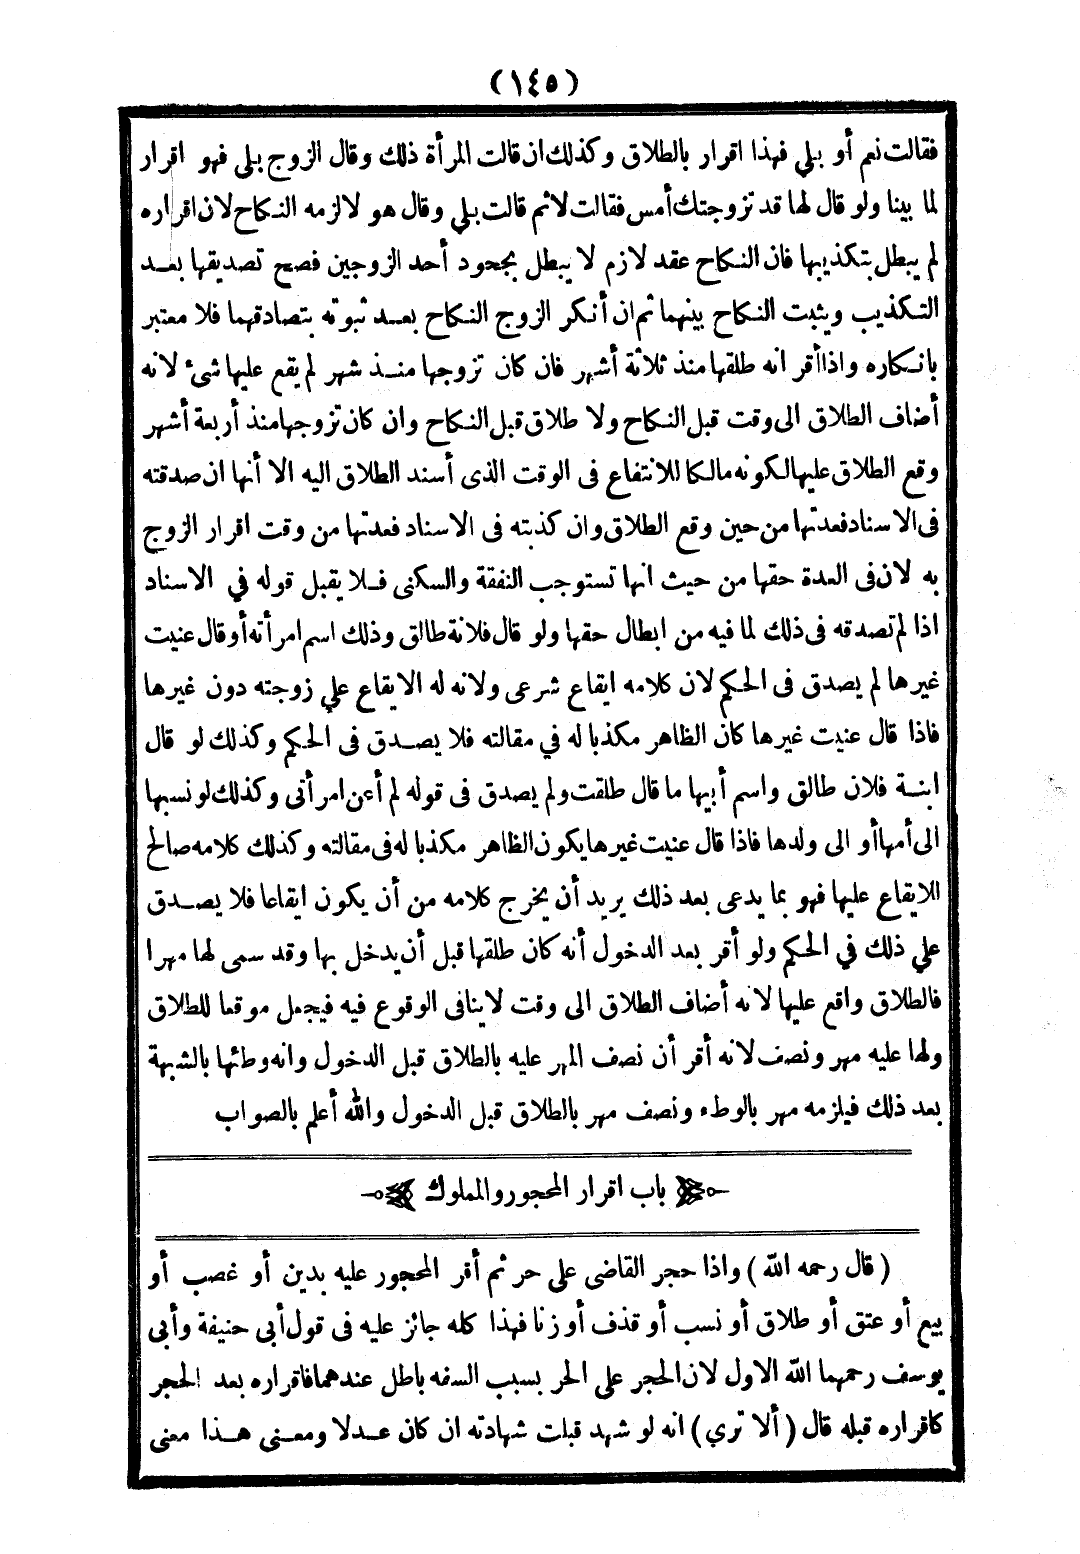 (١٤٥)
فقالت نعم أو بلي فهذا اقرار بالطلاق وكذلك ان قالت المرأة ذلك وقال الزوج بلى فهو اقرار
لما بينا ولو قال لها قد تزوجتك أمس فقالت لا ثم قالت بلي وقال هو لا لزمه النكاح لان اقراره
لم يبطل بتكذيبها فان النكاح عقد لازم لا يبطل بجحود أحد الزوجين فصح تصديقها بعد
التكذيب ويثبت النكاح بينهما ثم ان أنكر الزوج النكاح بعد ثبوته بتصادقهما فلا معتبر
بانكاره واذا أقر انه طلقها منذ ثلاثة أشهر فان كان تزوجها منذ شهر لم يقع عليها شئ لانه
أضاف الطلاق الى وقت قبل النكاح ولا طلاق قبل النكاح وان كان تزوجها منذ أربعة أشهر
وقع الطلاق عليها لكونه مالكا للانتفاع فى الوقت الذى أسند الطلاق اليه الا أنها ان صدقته
فى الاسناد فعدتها من حين وقع الطلاق وان كذبته فى الاسناد فعدتها من وقت اقرار الزوج
به لان فى العدة حقها من حيث انها تستوجب النفقة والسكنى فلا يقبل قوله في الاسناد
اذا لم تصدقه فى ذلك لما فيه من ابطال حقها ولو قال فلانة طالق وذلك اسم امرأته أو قال عنيت
غيرها لم يصدق فى الحكم لان كلامه ايقاع شرعى ولانه له الايقاع علي زوجته دون غيرها
فاذا قال عنيت غيرها كان الظاهر مكذبا له في مقالته فلا يصدق فى الحكم وكذلك لو قال
ابنة فلان طالق واسم أبيها ما قال طلقت ولم يصدق فى قوله لم أعن امرأتى وكذلك لو نسبها
الى أمها أو الى ولدها فاذا قال عنيت غيرها يكون الظاهر مكذبا له فى مقالته وكذلك كلامه صالح
للايقاع عليها فهو بما يدعى بعد ذلك يريد أن يخرج كلامه من أن يكون ايقاعا فلا يصدق
علي ذلك في الحكم ولو أقر بعد الدخول أنه كان طلقها قبل أن يدخل بها وقد سمى لها مهرا
فالطلاق واقع عليها لانه أضاف الطلاق الى وقت لا ينافى الوقوع فيه فيجعل موقعا للطلاق
ولها عليه مهر ونصف لانه أقر أن نصف المهر عليه بالطلاق قبل الدخول وانه وطئها بالشبهة
بعد ذلك فيلزمه مهر بالوطء ونصف مهر بالطلاق قبل الدخول والله أعلم بالصواب
باب اقرار المحجور والمملوك
( قال رحمه الله ) واذا حجر القاضى على حر ثم أقر المحجور عليه بدين أو غصب أو
بيع أو عتق أو طلاق أو نسب أو قذف أو زنا فهذا كله جائز عليه فى قول أبي حنيفة وأبى
يوسف رحمهما الله الاول لان الحجر على الحر بسبب السفه باطل عندهما فاقراره بعد الحجر
كاقراره قبله قال ( ألا تري ) انه لو شهد قبلت شهادته ان كان عدلا ومعنى هذا معنى